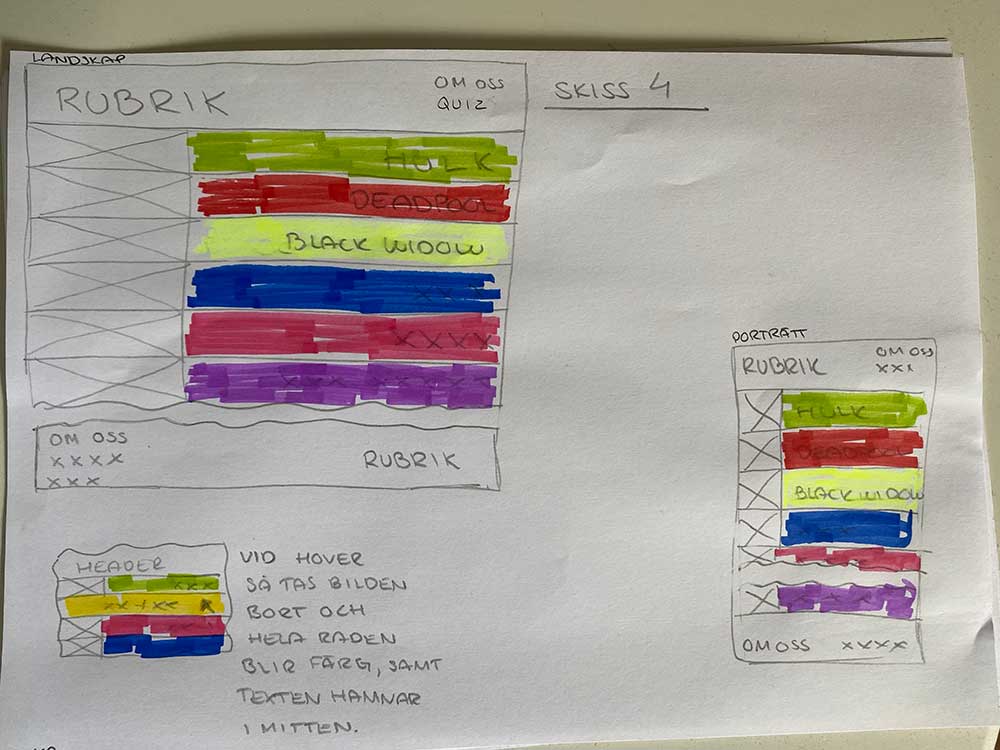 LANDSKAP
RUBRIK
OM OSS
QUIZ
SKISS 4
HULK
DEADPOOL
BLACK WIDOW
XXXX
XXXX
XXX XXXX
OM OSS
XXXX
XXX
RUBRIK
PORTRÄTT
RUBRIK
OM OSS
XXX
HULK
DEADPOOL
BLACK WIDOW
OM OSS XXXX
HEADER
XXX
VID HOVER
SÅ TAS BILDEN
BORT OCH
HELA RADEN
BLIR FÄRG, SAMT
TEXTEN HAMNAR
I MITTEN.